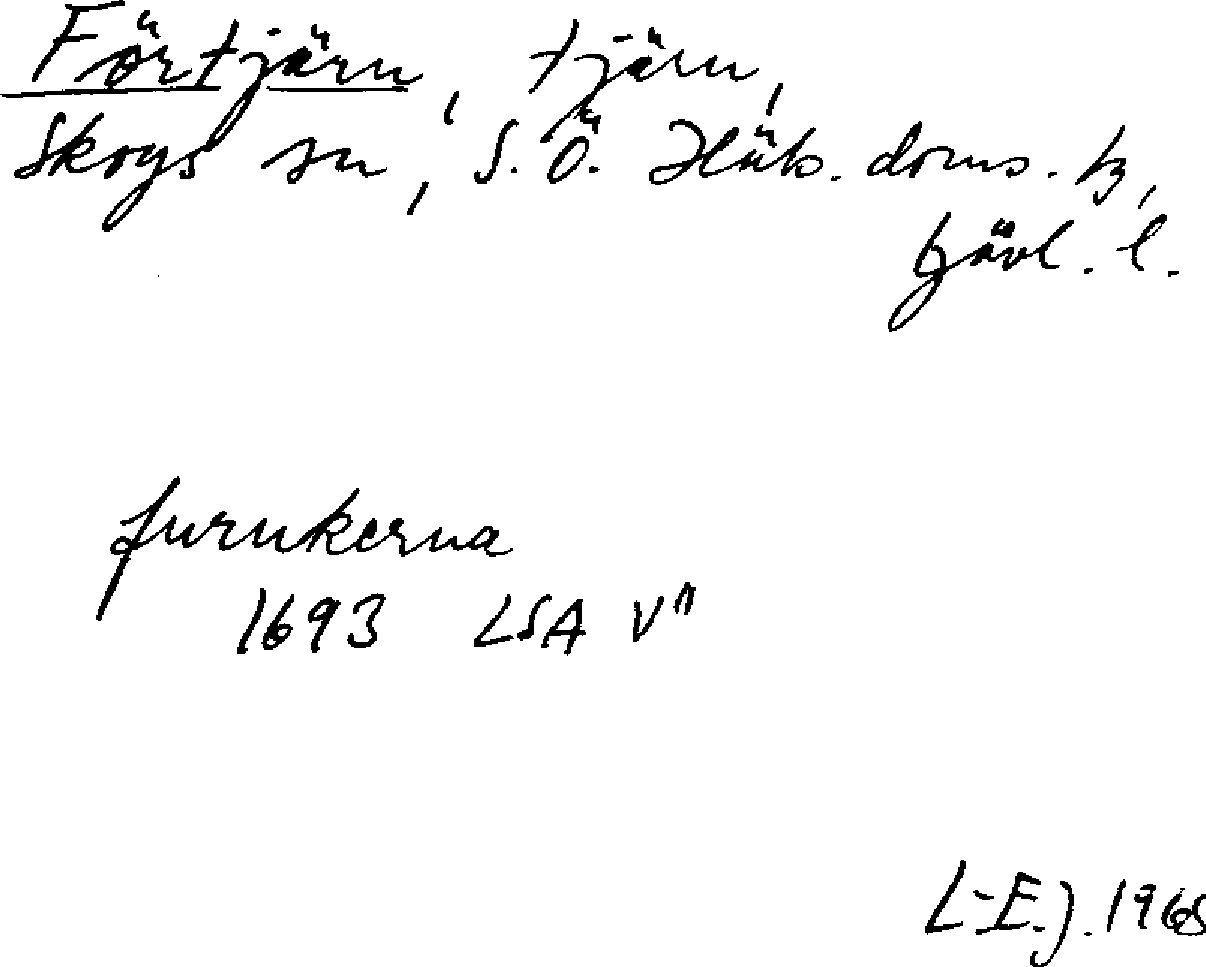 Förtjärn, tjärn,
Skogs sn, S.Ö. Häls. doms. tz,
Gävl. l.
furukerna
1693 LSA V"
L-E.J. 1968